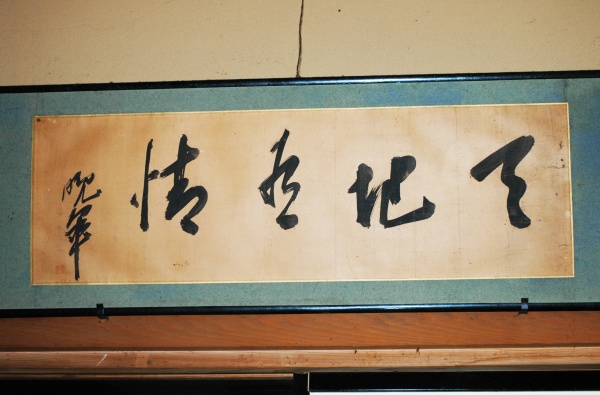 天地有情
晩翠